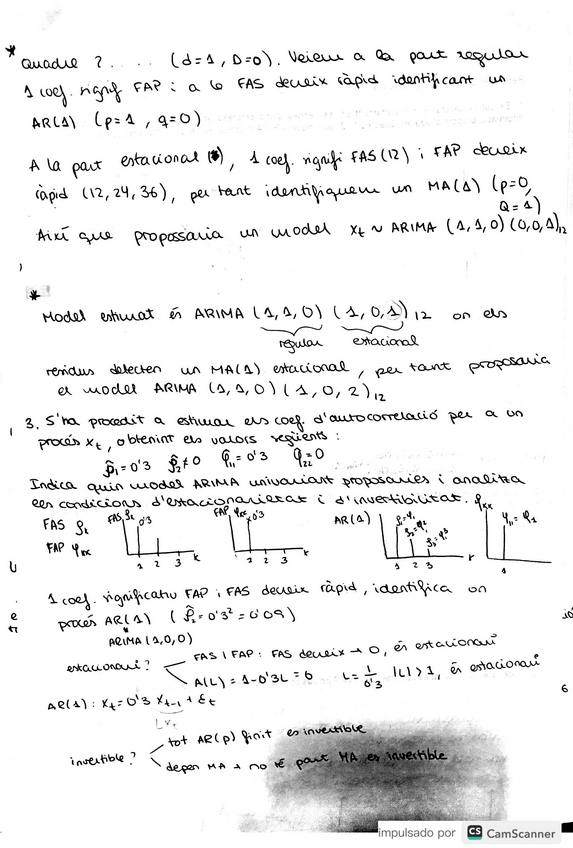 * Quadre 2 . . . . (d=1, D=0). Veiem a la part regular
1 coef. signif FAP i a la FAS decreix ràpid identificant un
AR(1) (p=1, q=0)
A la part estacional, 1 coef. signifi FAS(12) i FAP decreix
ràpid (12,24,36), per tant identifiquem un MA(1) (p=0,
Q=1)
Així que propossaria un model Xt ~ ARIMA (1,1,0)(0,0,1)12
*
Model estimat és ARIMA (1,1,0) (1,0,1)12 on els
regular estacional
residus detecten un MA(1) estacional, per tant proposaria
el model ARIMA (1,1,0)(1,0,2)12
3. S'ha procedit a estimar els coef. d'autocorrelació per a un
procés Xt, obtenint els valors següents:
ρ̂1=0'3 ρ̂2≠0 φ̂11=0'3 φ̂22=0
Indica quin model ARIMA univariant proposaries i analitza
les condicions d'estacionarietat i d'invertibilitat.
FAS ρk FAS ρk 0'3 FAP φkk 0'3 AR(1) ρ1=φ1 ρ2=φ1² ρ3=φ1³ φkk φ11=φ1
FAP φkk 1 2 3 k 1 2 3 k 1 2 3 k 1
1 coef. significatiu FAP i FAS decreix ràpid, identifica un
procés AR(1) (ρ̂2=0'3²=0'09)
ARIMA (1,0,0)
estacionari? FAS i FAP: FAS decreix → 0, és estacionari
A(L) = 1-0'3L=0 L=1/0'3 |L|>1, és estacionari
AR(1): Xt=0'3 Xt-1 + Ɛt
LXt
invertible? tot AR(p) finit es invertible
depen MA → no té part MA es invertible
impulsado por CS CamScanner